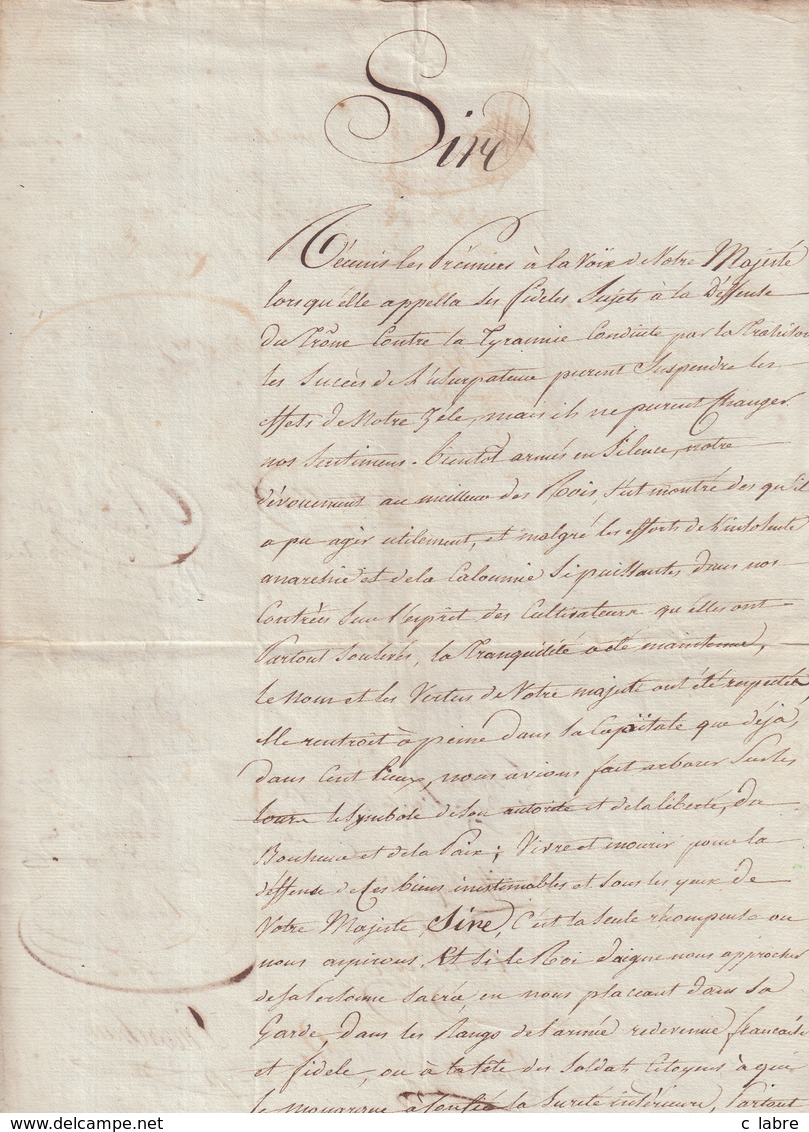 Sire
Réunis les Prémiers à la Voix de Votre Majesté
lorsqu'elle appella ses fideles Sujets à la Déffense
du Trône Contre la Tyrannie Conduite par la Trahison
les Succès de L'usurpateur purent Suspendre les
effets de Notre Zèle, mais ils ne purent Changer
nos Sentimens. bientôt armés en Silence, notre
dévouement au meilleur des Rois, s'est montré des qu'il
a pu agir utilement, et malgré les efforts de L'insolente
anarchie et de la Calomnie Si puissantes dans nos
Contrées Sur l'esprit des Cultivateurs qu'elles ont
Partout Soulevés, la Tranquilité a été maintenue,
le nom et les Vertus de Votre majesté ont été respectés
Elle rentroit à peine dans la Capitale que déjà,
dans Cent lieux, nous avions fait arborer Sur les
tours le Symbole de Son autorité et de la liberté, du
Bonheur et de la Paix; Vivre et mourir pour la
déffense de Ces biens inestimables et sous les yeux de
Votre Majesté, Sire, C'est la seule rhompense ou
nous aspirons. Et Si le Roi daigne nous approcher
de Sa Personne Sacrée, en nous plaçant dans Sa
Garde, dans les Rangs de l'armée redevenue française
et fidele, ou à la tête des Soldats Citoyens à qui
le monarque à Confié Sa Sureté intérieure, Partout
c labre